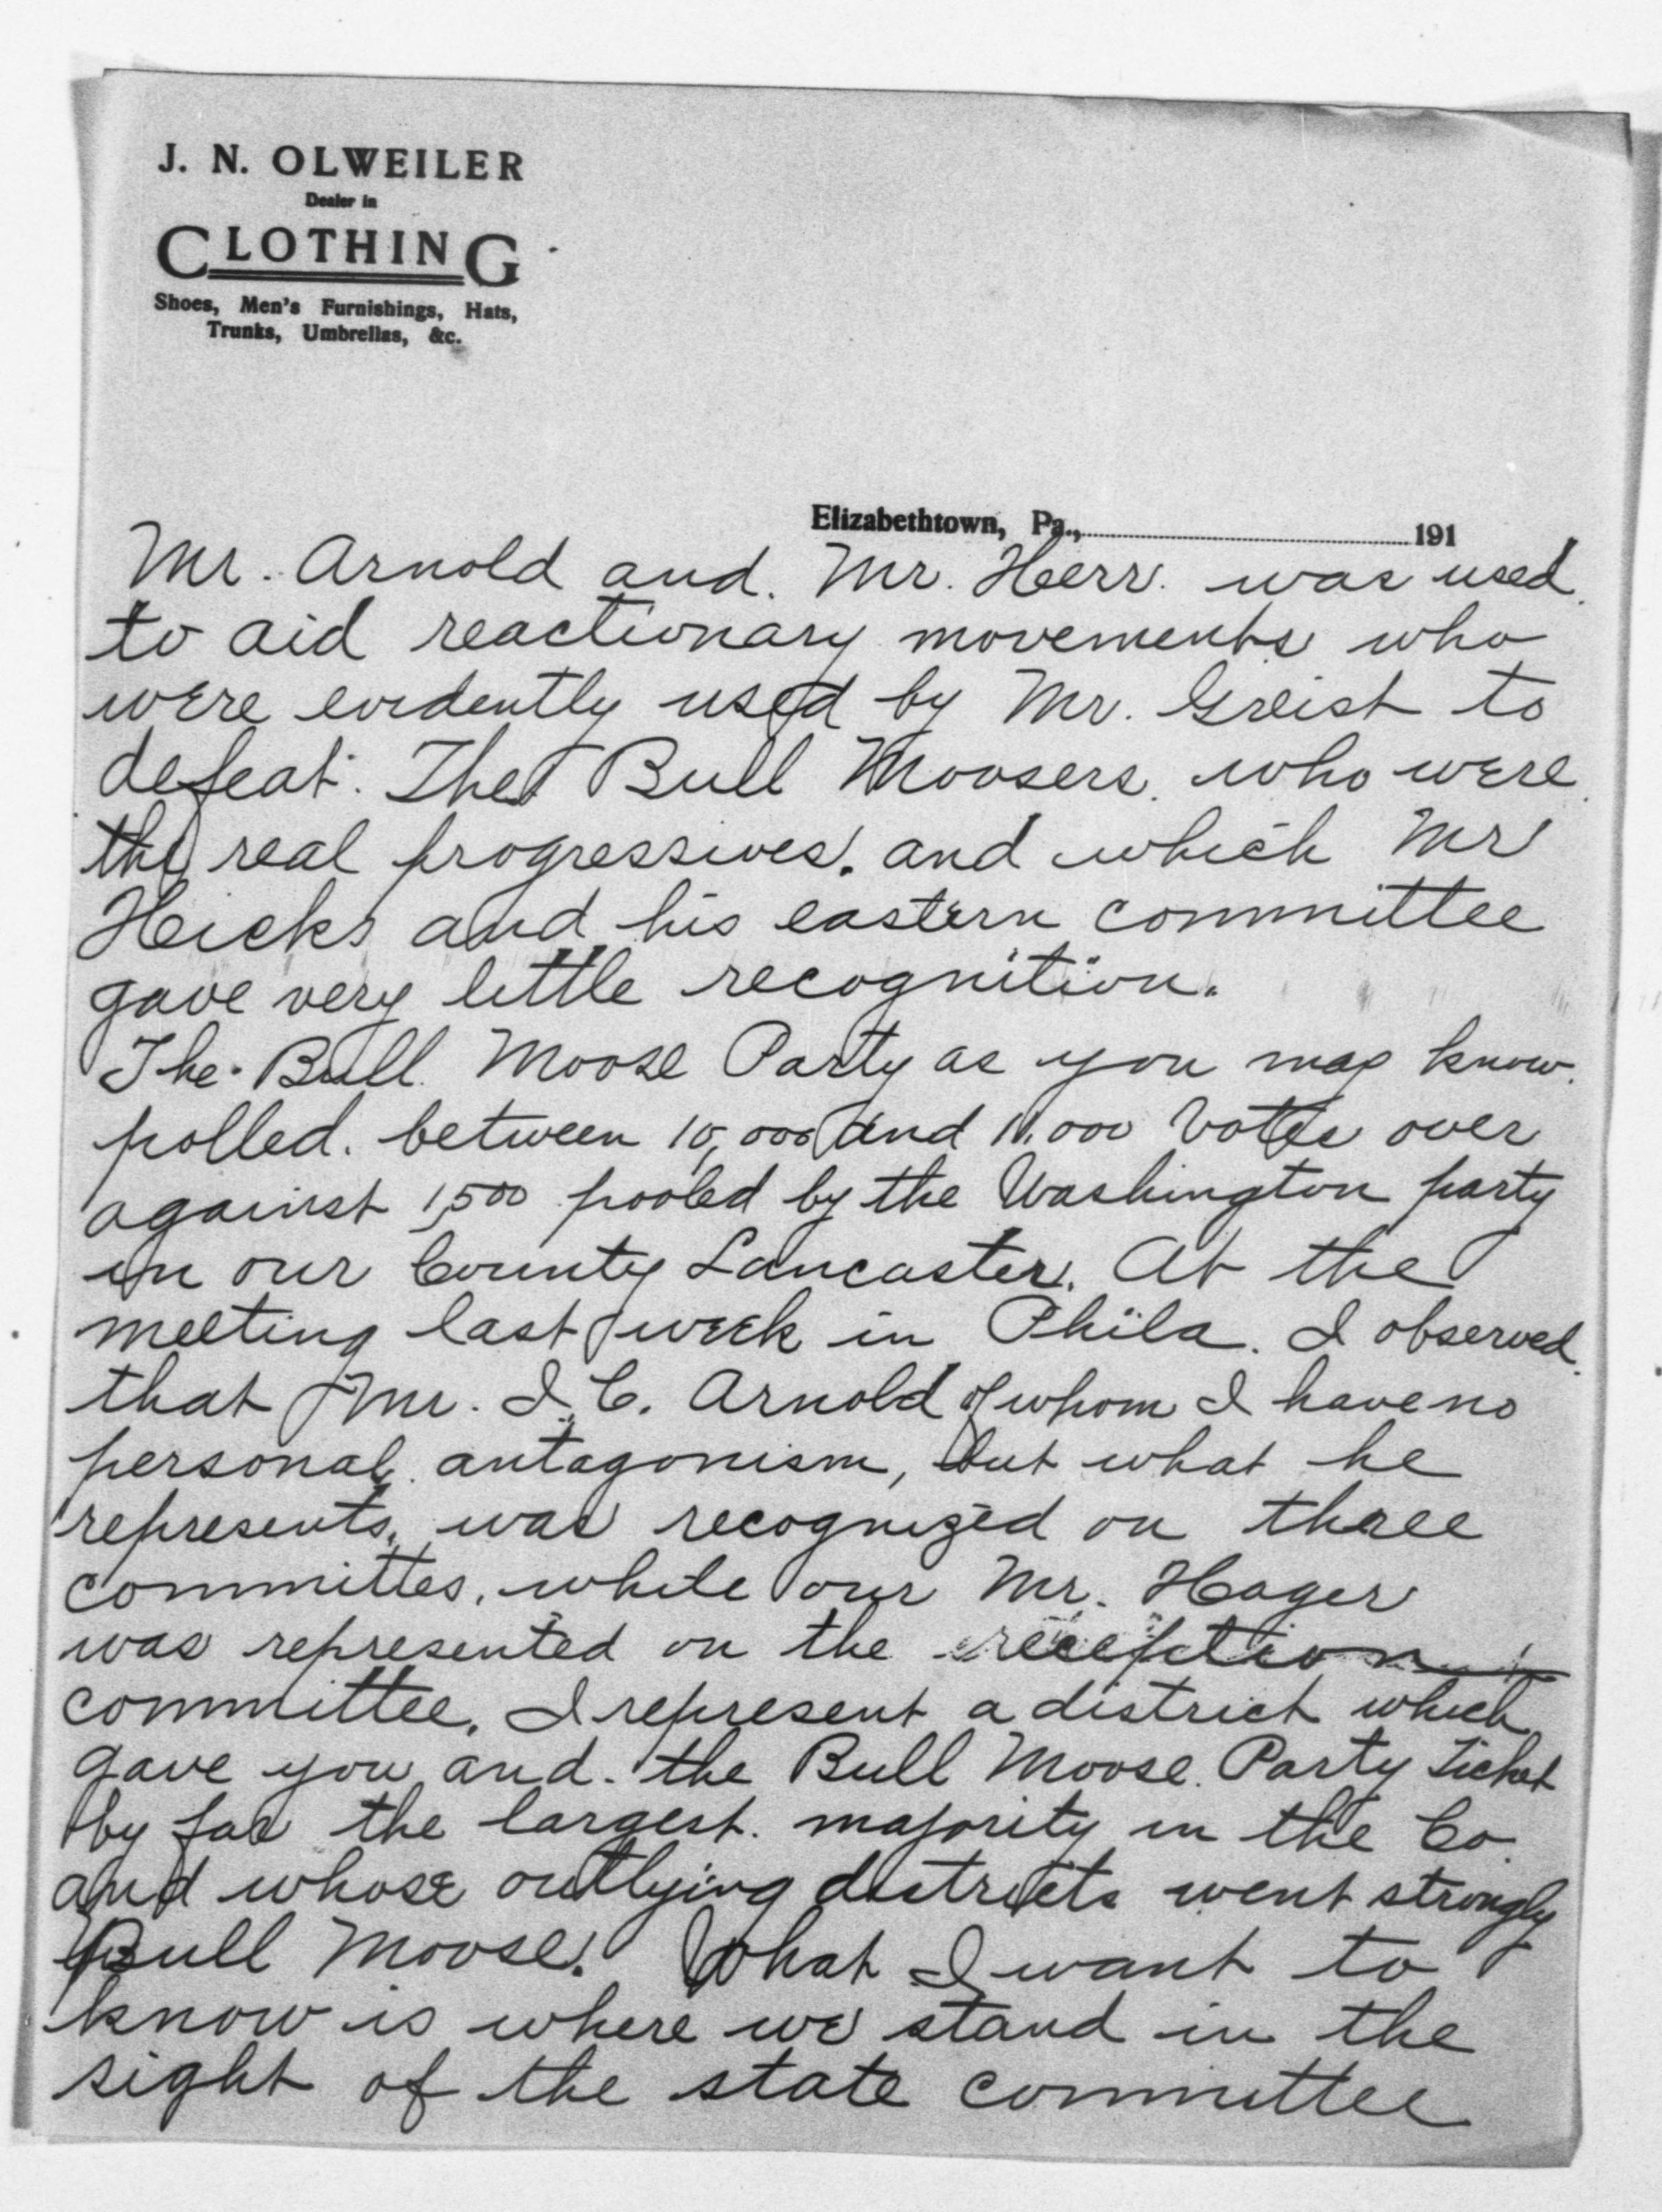 J. N. OLWEILER
Dealer in
CLOTHING
Shoes, Men's Furnishings, Hats,
Trunks, Umbrellas, &c.
Elizabethtown, Pa., 191
Mr. Arnold and. Mr. Herr. was used
to aid reactionary movements who
were evidently used by Mr. Greist to
defeat. The Bull Moosers. who were
the real progressives. and which Mr
Heicks and his eastern committee
gave very little recognition.
The Bull Moose Party as you may know.
polled. between 10,000 and 11.000 Votes over
against 1,500 pooled by the Washington party
in our County Lancaster. At the
meeting last week in Phila. I observed
that Mr. I. C. Arnold of whom I have no
personal antagonism, but what he
represents, was recognized on three
committes, while our Mr. Hager
was represented on the reception
committee. I represent a district which
gave you and. the Bull Moose Party ticket
by far the largest. majority in the Co.
and whose outlying districts went strongly
Bull Moose. What I want to
know is where we stand in the
sight of the state committee